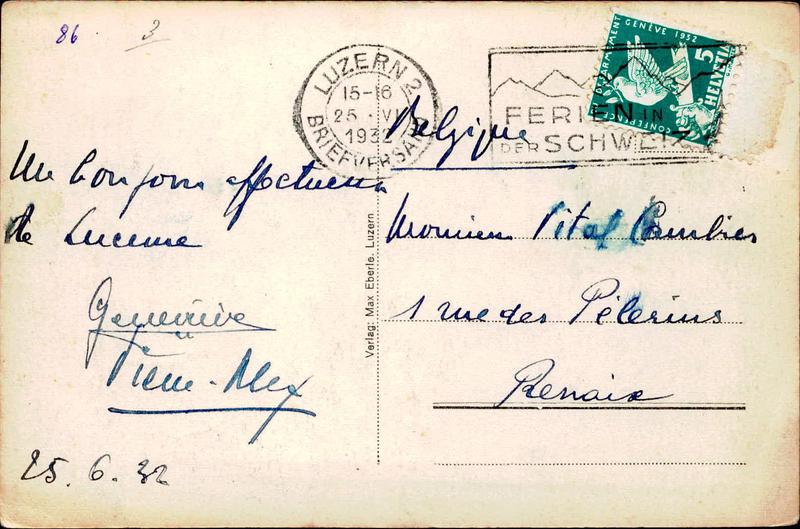 86
3
LUZERN 2
15-16
25.VI
1932
BRIEFVERSAND
FERIEN IN
DER SCHWEIZ
GENÈVE 1932
5
HELVETIA
Belgique
Un bonjour affectueux
de Lucerne
Geneviève
Pierre-Alex
25.6.32
Verlag: Max Eberle, Luzern
Monsieur Vital Cambier
1 rue des Pèlerins
Renaix